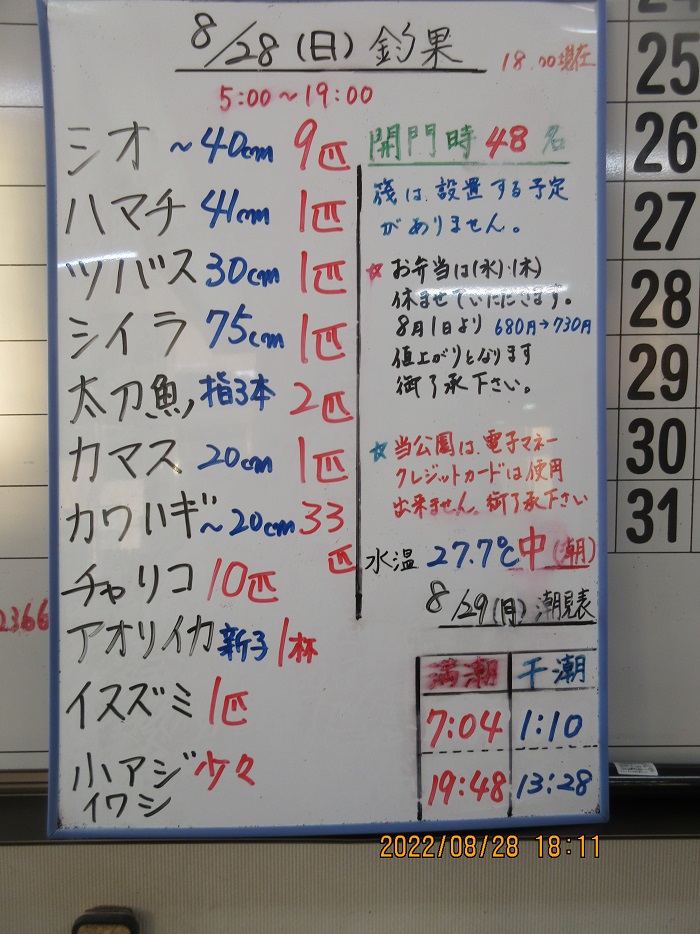 8/28(日)釣果
18:00現在
5:00〜19:00
シオ 〜40cm 9匹
ハマチ 41cm 1匹
ツバス 30cm 1匹
シイラ 75cm 1匹
太刀魚 指3本 2匹
カマス 20cm 1匹
カワハギ 〜20cm 33匹
チャリコ 10匹
アオリイカ 新子 1杯
イスズミ 1匹
小アジ 少々
イワシ
開門時 48名
筏は、設置する予定
がありません。
☆お弁当は(水)・(木)
休ませていただきます。
8月1日より 680円→730円
値上がりとなります
御了承下さい。
☆当公園は、電子マネー
クレジットカードは使用
出来ません。御了承下さい
水温 27.7℃ 中(潮)
8/29(月)潮見表
満潮 干潮
7:04 1:10
19:48 13:28
25
26
27
28
29
30
31
2366
2022/08/28 18:11